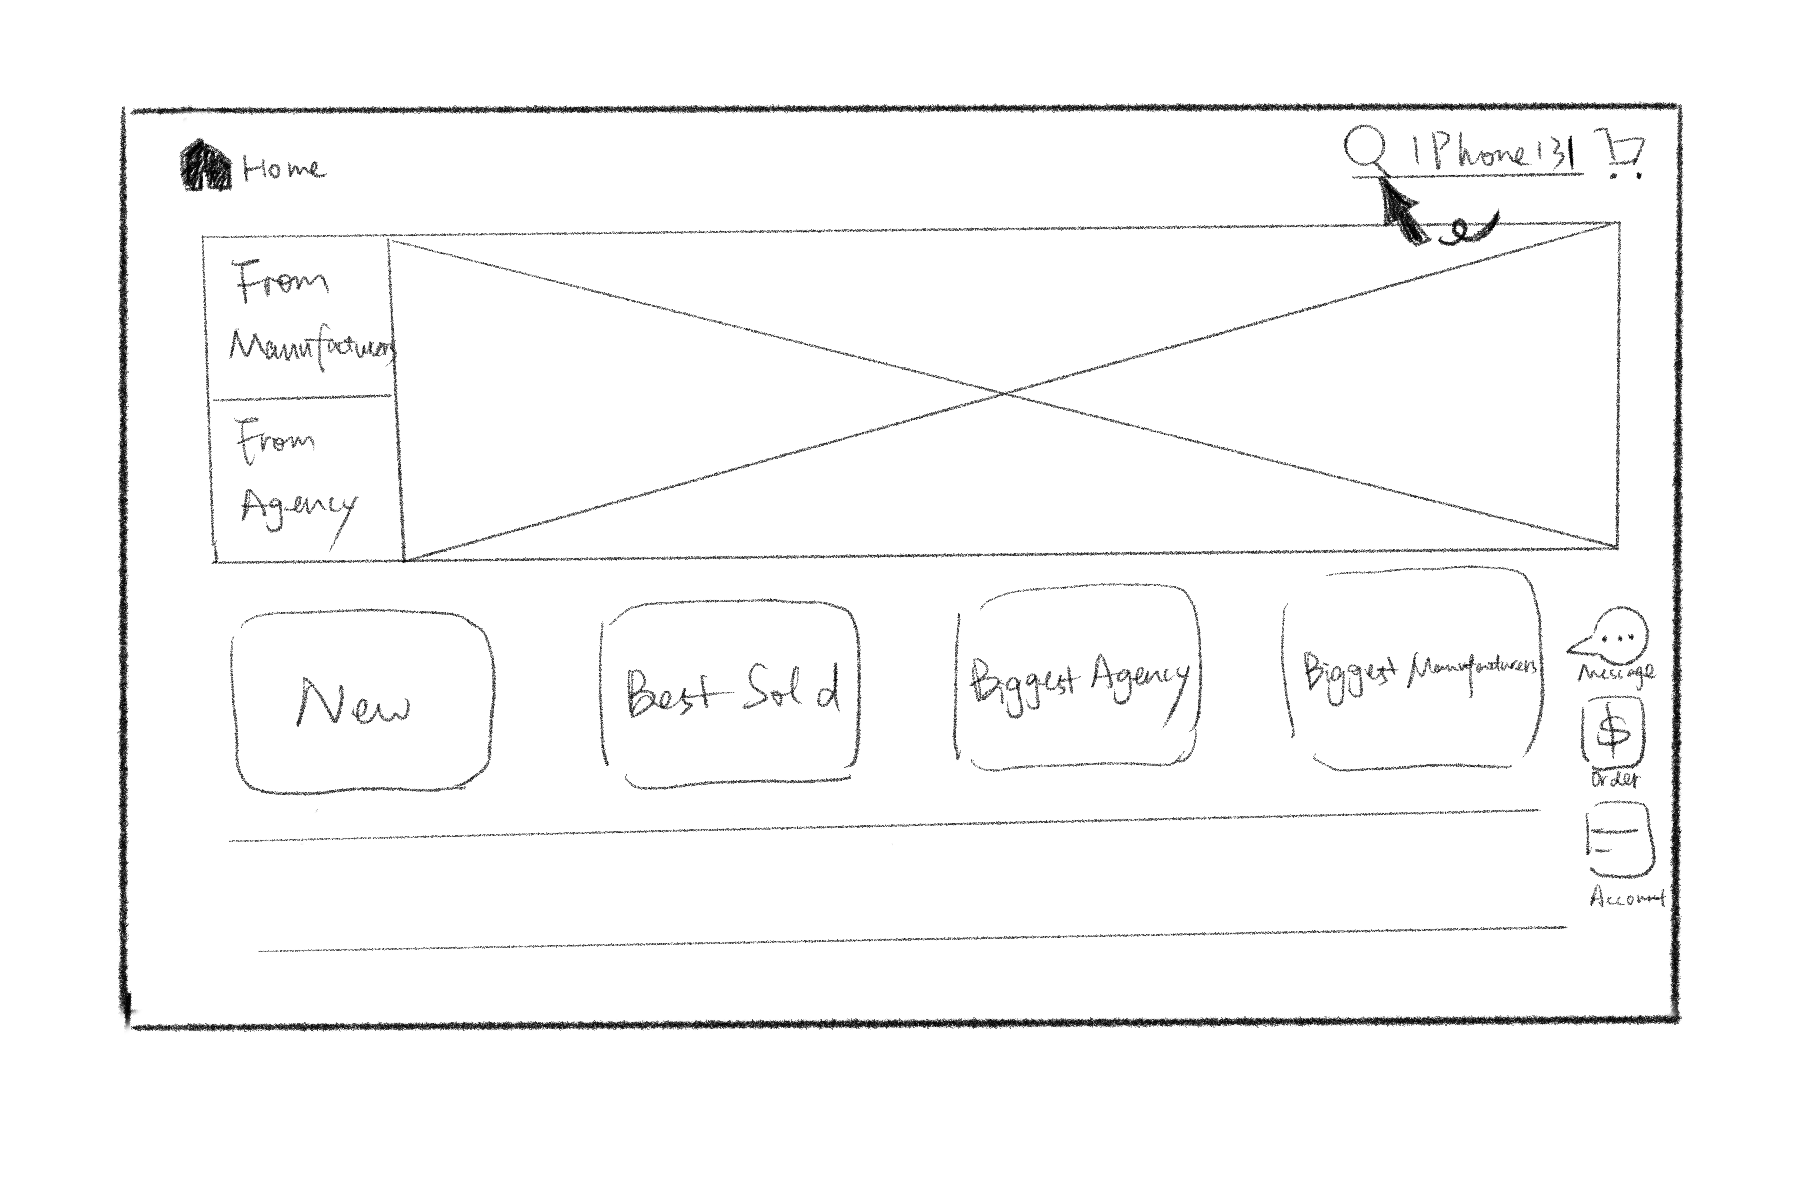 Home
iPhone13|
From
Manufacturers
From
Agency
New
Best Sold
Biggest Agency
Biggest Manufacturers
Message
$
Order
Account